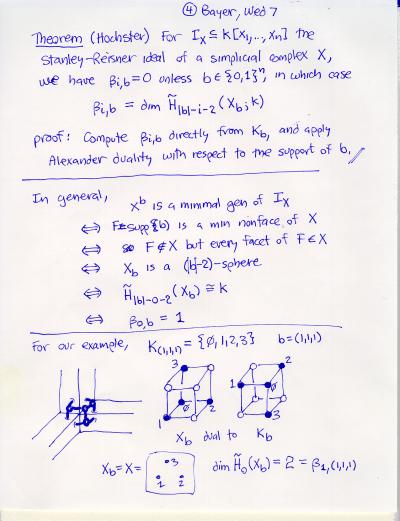 ④ Bayer, Wed 7
Theorem (Hochster) For I_X ⊆ k[x₁,...,xₙ] the
Stanley-Reisner ideal of a simplicial complex X,
we have β_{i,b} = 0 unless b ∈ {0,1}ⁿ, in which case
β_{i,b} = dim H̃_{|b|-i-2}(X_b; k)
proof: Compute β_{i,b} directly from K_b, and apply
Alexander duality with respect to the support of b. //
In general, x^b is a minimal gen of I_X
⇔ F=supp(b) is a min nonface of X
⇔ F ∉ X but every facet of F ∈ X
⇔ X_b is a (|b|-2)-sphere
⇔ H̃_{|b|-0-2}(X_b) ≅ k
⇔ β_{0,b} = 1
For our example, K_{(1,1,1)} = {∅,1,2,3} b=(1,1,1)
3 2
1 ∅
1 ∅ 2 3
X_b dual to K_b
X_b = X = 3 1 2 dim H̃₀(X_b) = 2 = β_{1,(1,1,1)}